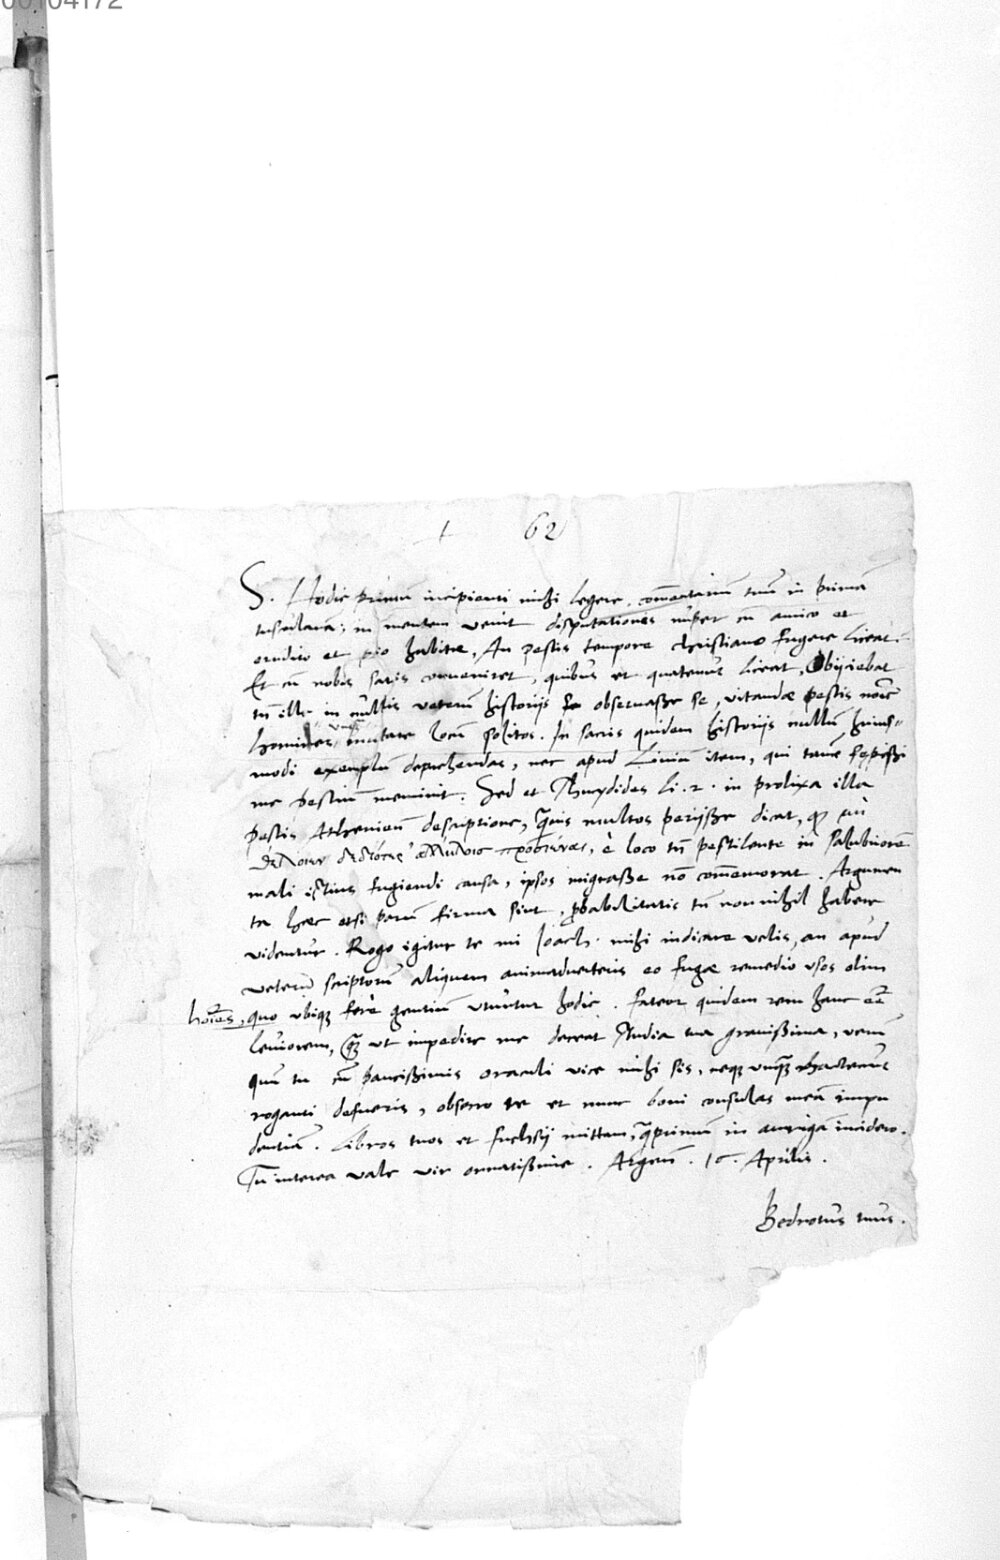 00104172
1 62
S. Hodie primum incipienti mihi legere commentarium tuum in primā
tusculanā, in mentem venit disputationis nuper cū amico et
erudito et pio habitæ, An pestis tempore christiano fugere liceat.
Et cū nobis satis conveniret, quibus et quatenus liceat, Obijciebat
tn̄ ille in nullis veterum historijs se observasse se, vitandæ pestis noīe
homines unquam mutare locū solitos. In sacris quidem historijs nullū huius-
modi exemplū deprehendas, nec apud Livium item, qui tamē sepissi
me pestium meminit. Sed et Thucydides li. 2. in prolixa illa
pestis Atheniensiū descriptione, quāvis multos perijsse dicat, μὴ
θέλοιεν δεδιότες ἀλλήλοις προσιέναι, è loco tn̄ pestilente in salubriorē
mali istius fugiendi causa, ipsos migrasse nō commemorat. Argumen
ta hæc etsi parum firma sint, probabilitatis tn̄ nonnihil habere
videntur. Rogo igitur te mi Joach. mihi indicare velis, an apud
veterū scriptorum aliquem animadverteris eo fugæ remedio usos olim
hoīes, quo ubiq; ferè gentium utuntur hodie. Fateor quidem rem hanc eē
leviorem, quā ut impedire me deceat studia tua gravissima, verū
quū tu cū paucissimis oraculi vice mihi sis, neq; unquā hactenus
roganti defueris, obsecro te et nunc boni consulas meā impu
dentiam. Libros tuos et Fuchsij mittam, quāprimum in aurigā incidero.
Tu interea vale vir ornatissime. Argent. 16. Aprilis.
Bedrotus tuus.